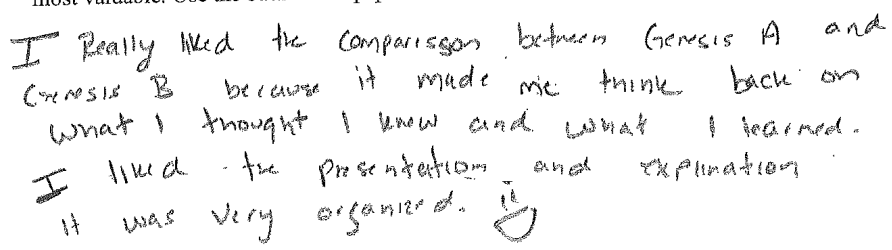 most valuable. Use the
I Really liked the comparisson between Genesis A and
Genesis B because it made me think back on
what I thought I knew and what I learned.
I liked the presentation and explination
it was very organized.